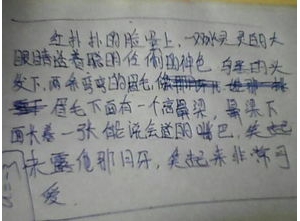 红扑扑的脸蛋上,一双水灵灵的大
眼睛透着聪明伶俐的神色,乌黑的头
发下,两条弯弯的眉毛,
眉毛下面有一个高鼻梁,鼻梁下
面长着一张能说会道的嘴巴,笑起
来露出那月牙,笑起来非常可
爱.